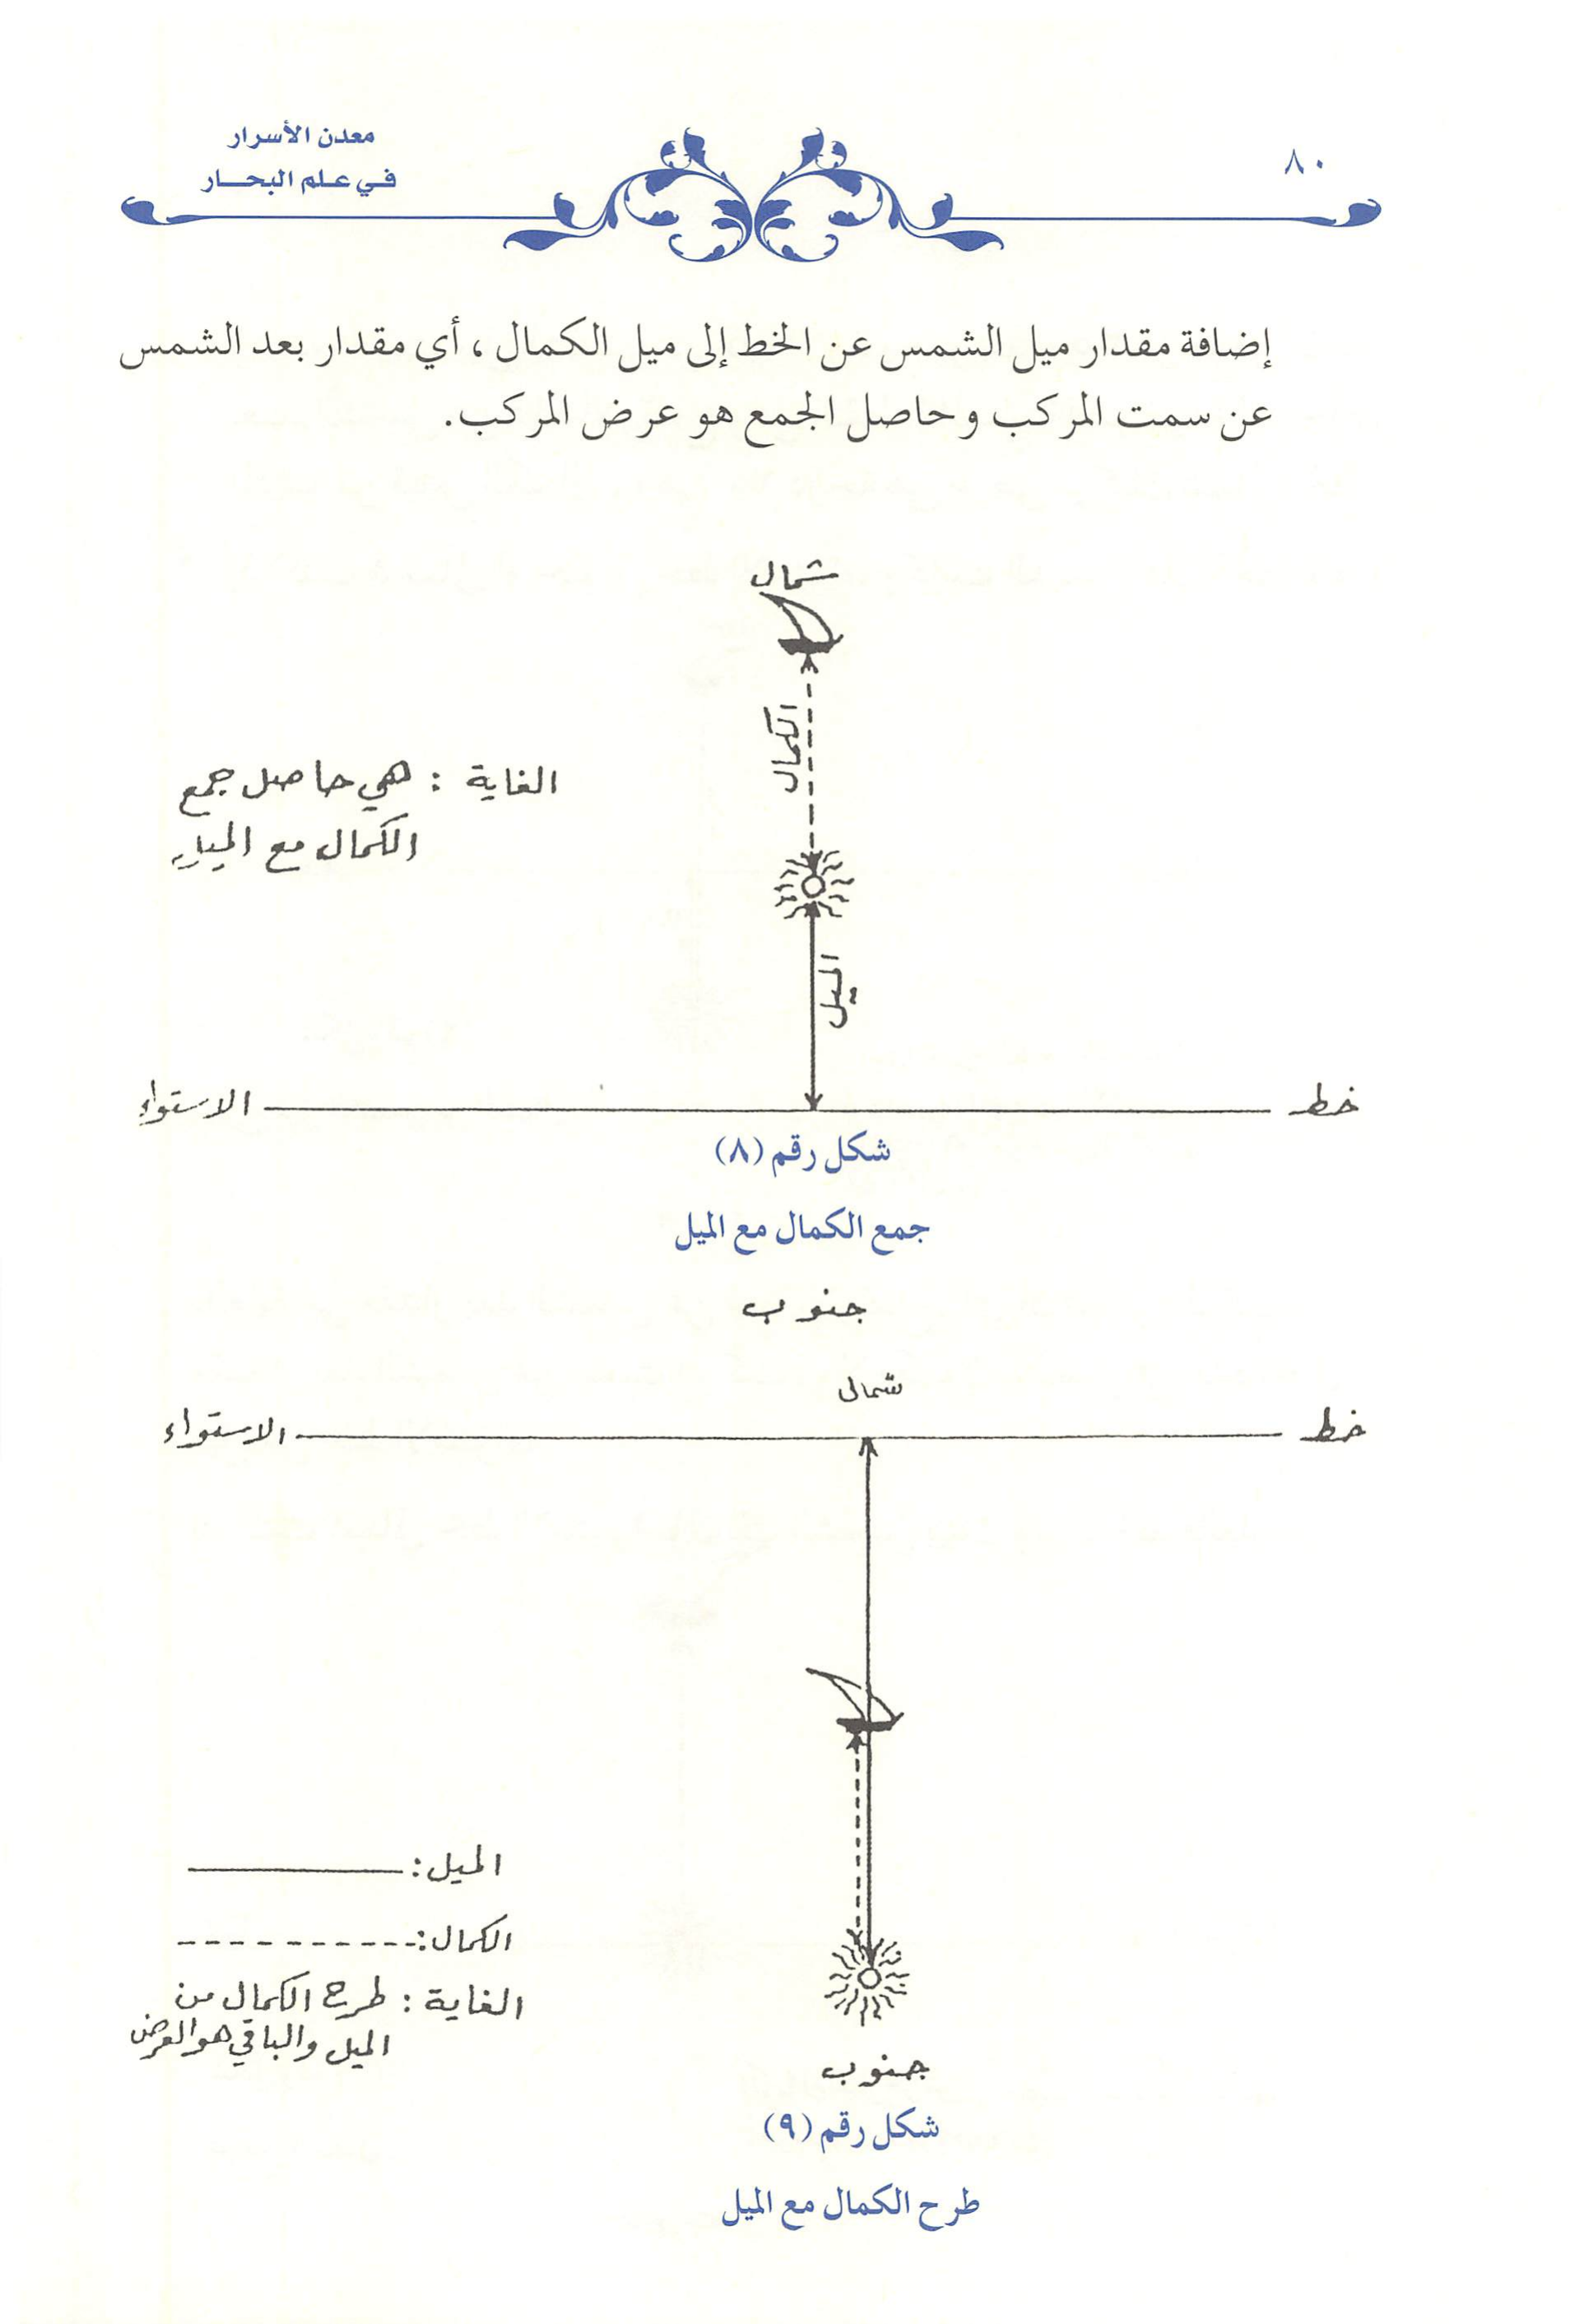 ٨٠
معدن الأسرار
في علم البحار
إضافة مقدار ميل الشمس عن الخط إلى ميل الكمال ، أي مقدار بعد الشمس
عن سمت المركب وحاصل الجمع هو عرض المركب.
شمال
الكمال
الغاية : هي حاصل جمع
الكمال مع الميل
الميل
خط الاستواء
شكل رقم (٨)
جمع الكمال مع الميل
جنوب
شمال
خط الاستواء
الميل :
الكمال :
الغاية : طرح الكمال من
الميل والباقي هو العرض
جنوب
شكل رقم (٩)
طرح الكمال مع الميل